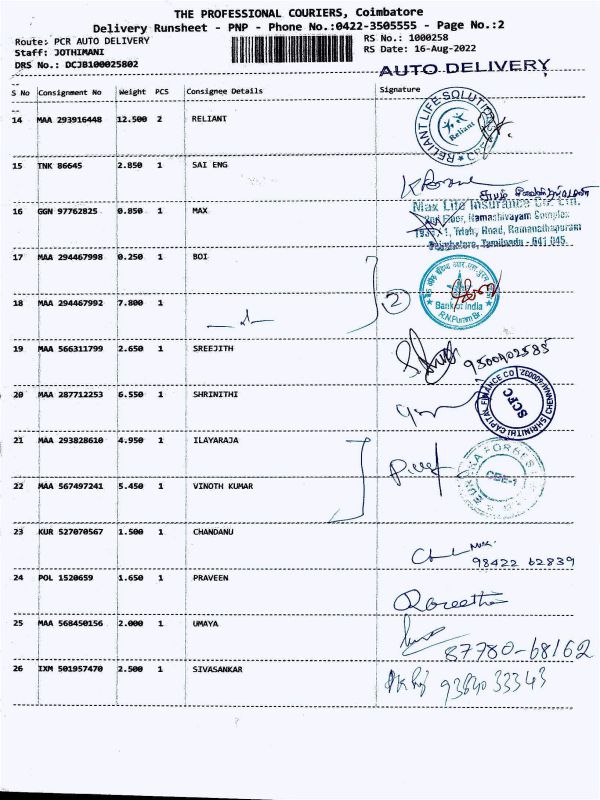 THE PROFESSIONAL COURIERS, Coimbatore
Delivery Runsheet - PNP - Phone No.:0422-3505555 - Page No.:2
Route: PCR AUTO DELIVERY
RS No.: 1000258
Staff: JOTHIMANI
RS Date: 16-Aug-2022
DRS No.: DCJB100025802
AUTO DELIVERY
S No Consignment No Weight PCS Consignee Details Signature
14 MAA 293916448 12.500 2 RELIANT
RELIANT LIFE SOLUTIONS
Reliant
15 TNK 86645 2.850 1 SAI ENG
16 GGN 97762825 0.850 1 MAX
Max Life Insurance Co. Ltd.
2nd Floor, Namashivayam Complex
Trichy Road, Ramanathapuram
Coimbatore, Tamilnadu - 641 045.
17 MAA 294467998 0.250 1 BOI
2
Bank of India
R.N.Puram Br.
18 MAA 294467992 7.800 1
19 MAA 566311799 2.650 1 SREEJITH
20 MAA 287712253 6.550 1 SHRINITHI
SHRINITHI CAPITAL FINANCE CO
CHENNAI-600002
SCFC
21 MAA 293828610 4.950 1 ILAYARAJA
EUREKA FORBES
CBE-1
22 MAA 567497241 5.450 1 VINOTH KUMAR
23 KUR 527070567 1.500 1 CHANDANU
98422 62839
24 POL 1520659 1.650 1 PRAVEEN
25 MAA 568450156 2.000 1 UMAYA
87780-68162
26 IXM 501957470 2.500 1 SIVASANKAR